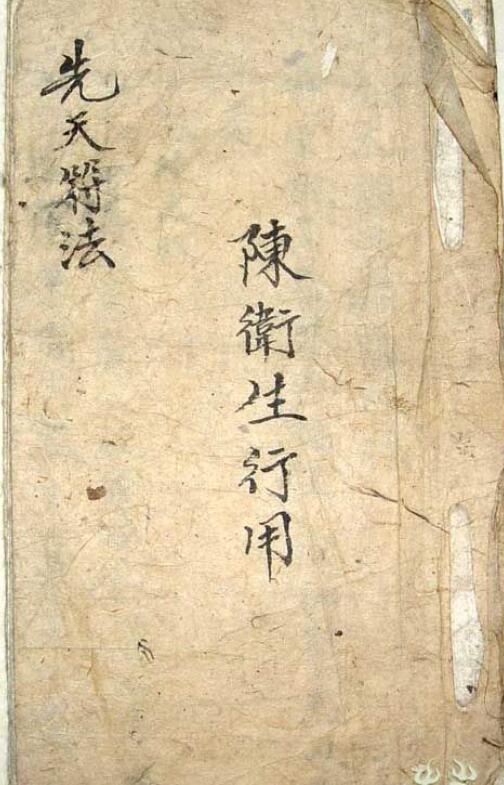 陳衛生行用
先天符法